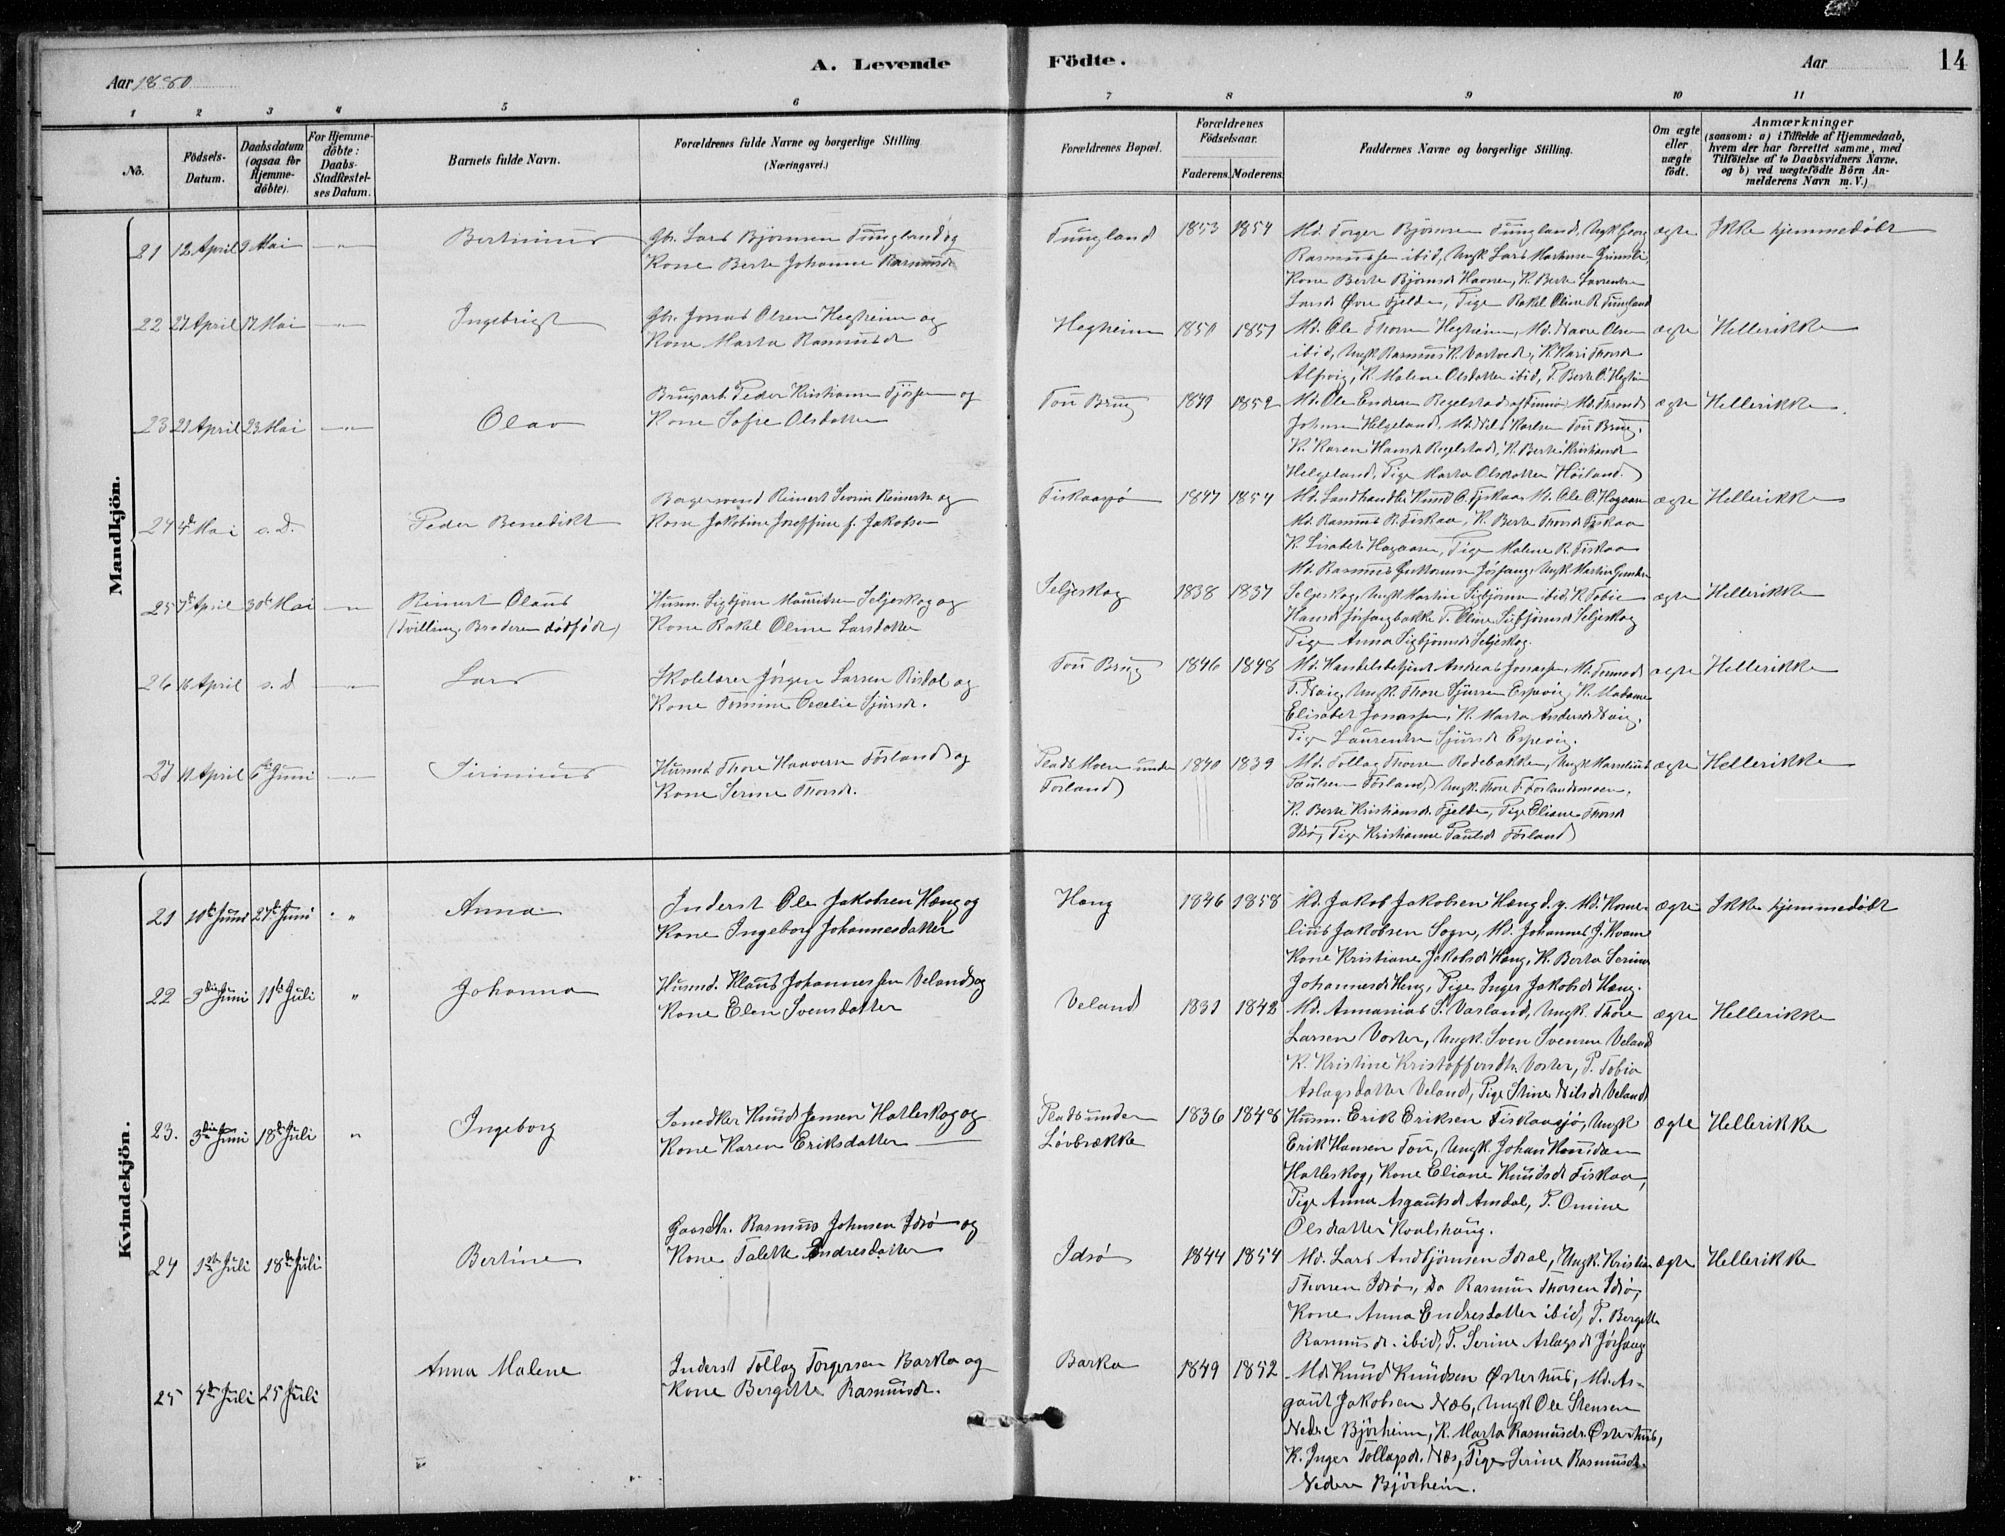 Aar 1880
A. Levende Födte.
Aar
14
1 2 3 4 5 6 7 8 9 10 11
No.
Födsels-Datum.
Daabsdatum (ogsaa for Hjemme-döbte).
For Hjemme-döbte: Daabs-Stadfæstelses Datum.
Barnets fulde Navn.
Forældrenes fulde Navne og borgerlige Stilling (Næringsvei.)
Forældrenes Bopæl.
Forældrenes Födselsaar.
Faderens. Moderens.
Faddernes Navne og borgerlige Stilling.
Om ægte eller uægte födt.
Anmærkninger
(saasom: a) i Tilfælde af Hjemmedaab,
hvem der har forrettet samme, med
Tilföielse af to Daabsvidners Navne.
og b) ved uægtefödte Börn An-
melderens Navn m. V.)
Mandkjön.
21 12 April 9 Mai Bertinius
Gbr. Lars Bjørnsen Tungland og
Kone Berte Johanne Rasmusd.
Tungland 1853 1854
Md. Torger Bjørnsen Tungland, Ungk Georg
Rasmussen ibid, Ungk Lars Martinsen Grimsli
Kone Berte Bjørnsd Haavn, K. Berte Laurentse
Larsd Øvre Fjelde, Pige Rakel Oline R. Tungland
ægte Ikke hjemmedøbt
22 27 April 17 Mai Ingebrigt
Gbr. Jonas Olsen Hegheim og
Kone Marta Rasmusd
Hegheim 1850 1857
Md. Ole Thorsen Hegheim, Md. Haave Olsen
ibid, Ungk Rasmus K. Vastvedt, K. Kari Thorsd
Alsvig, K. Malene Olsdatter ibid, P. Berte O. Hegheim
ægte Hellerikke
23 21 April 23 Mai Olav
Brugsarb. Peder Kristiansen Tjøssem og
Kone Sofie Olsdatter
Tou Brug 1849 1852
Md. Ole Endresen Regelstad af Finnø, Md. Thrond
Johnsen Helgeland, Md. Nils Karlsen Tou Brug,
K. Karen Hansd Regelstad, K. Berte Kristiansd
Helgeland, Pige Marta Olsdatter Høiland.
ægte Hellerikke.
24 4de Mai s.d. Peder Benedikt
Bagersvend Reinert Severin Reinertsen og
Kone Jakobine Josefine f. Jakobsen
Fiskaasjø 1847 1854
Md. Landhandler Knud O. Fiskaa, Md. Ole O. Hagaasen
Md. Rasmus R. Fiskaa, K. Berte Thorsd Fiskaa
K. Lisabet Hagaasen, Pige Malene R. Fiskaa
ægte Hellerikke
25 7de April 30de Mai Reinert Olaus
(Tvilling, Broderen dødfødt)
Husm. Sigbjørn Mauritsen Seljeskog og
Kone Rakel Oline Larsdatter
Seljeskog 1838 1837
Md. Rasmus Guttormsen Jøssang, Ungk Martin Gundersen
Seljeskog, Ungk Martin Sigbjørnsen ibid, K. Tobia
Hansd Jøssangbakke, P. Oline Sigbjørnsd Seljeskog
Pige Anna Sigbjørnsd Seljeskog.
ægte Hellerikke
26 16 April s.d. Lars
Skolelærer Jørgen Larsen Risdal og
Kone Tomine Cecelie Sjursd.
Tou Brug 1846 1848
Md. Handelsbetjent Andreas Jonassen, Md. Tormod
T. Naig, Ungk. Thore Sjursen Espevig, K. Madame
Elisabet Jonassen, K. Marta Andersd Naig,
Pige Laurentse Sjursd Espevig.
ægte Hellerikke
27 11 April 6te Juni Sirinius
Husmd Thore Haaversen Førland og
Kone Serine Thorsd.
Plads Moen under Førland 1840 1839
Md. Tollag Thorsen Rødebakken, Ungk Kornelius
Paulsen Førland, Ungk. Thore T. Førlandsmoen,
K. Berte Kristiansd. Fjelde, Pige Eliane Thorsd
Idsø, Pige Kristianne Paulsd Førland
ægte Hellerikke
Kvindekjön.
21 10de Juni 27de Juni Anna
Inderst Ole Jakobsen Hæng og
Kone Ingeborg Johannesdatter
Hæng 1846 1858
Md. Jakob Jakobsen Hæng d. y. Md. Korne-
lius Jakobsen Sogn, Md. Johannes J. Kvame
Kone Kristiane Jakobsd Hæng, K. Berta Serine
Johannesd Heng, Pige Inger Jakobsd Hæng.
ægte Ikke hjemmedøbt
22 3die Juni 11te Juli Johanna
Husmd. Klaus Johannessen Veland og
Kone Elen Svensdatter
Veland 1831 1842
Md. Annanias S. Varland, Ungk. Thore
Larsen Voster, Ungk. Sven Svensen Veland
K. Kristine Kristoffersdtr. Voster, P. Tobia
Aslagsdatter Veland, Pige Stine Nilsd Veland
ægte Hellerikke
23. 3die Juni 18de Juli Ingeborg
Snedker Knud Jensen Hatleskog og
Kone Karen Eriksdatter
Plads under Løvbrække 1836 1848
Husm. Erik Eriksen Fiskaasjø, Ungk
Erik Hansen Tou, Ungk. Johan
Hatleskog, Kone Eliane Knudsd Fiskaa,
Pige Anna Asgautsd Amdal, P. Omine
Olsdatter Kvalshaug.
ægte Hellerikke
24 1ste Juli 18de Juli Bertine
Gaardbr. Rasmus Johnsen Idsø og
Kone Talette Endresdatter
Idsø 1844 1854
Md. Lars Andbjørnsen Idsal, Ungk. Kristian
Thorsen Idsø, Do Rasmus Thorsen Idsø,
Kone Anna Endresdatter ibid, P. Bergitte
Rasmusd. ibid, P. Serine Aslagsd Jøssang
ægte Hellerikke
25 4de Juli 25 Juli Anna Malene
Inderst Tollag Torgersen Barka og
Kone Bergitte Rasmusd.
Barka 1849 1852
Md Knud Knudsen Østerhus, Md. As-
gaut Jakobsen Næs, Ungk Ole Stensen
Nedre Bjørheim, K. Marta Rasmusdr. Østerhus,
K. Inger Tollagsd. Næs, Pige Serine Rasmusd.
Nedre Bjørheim.